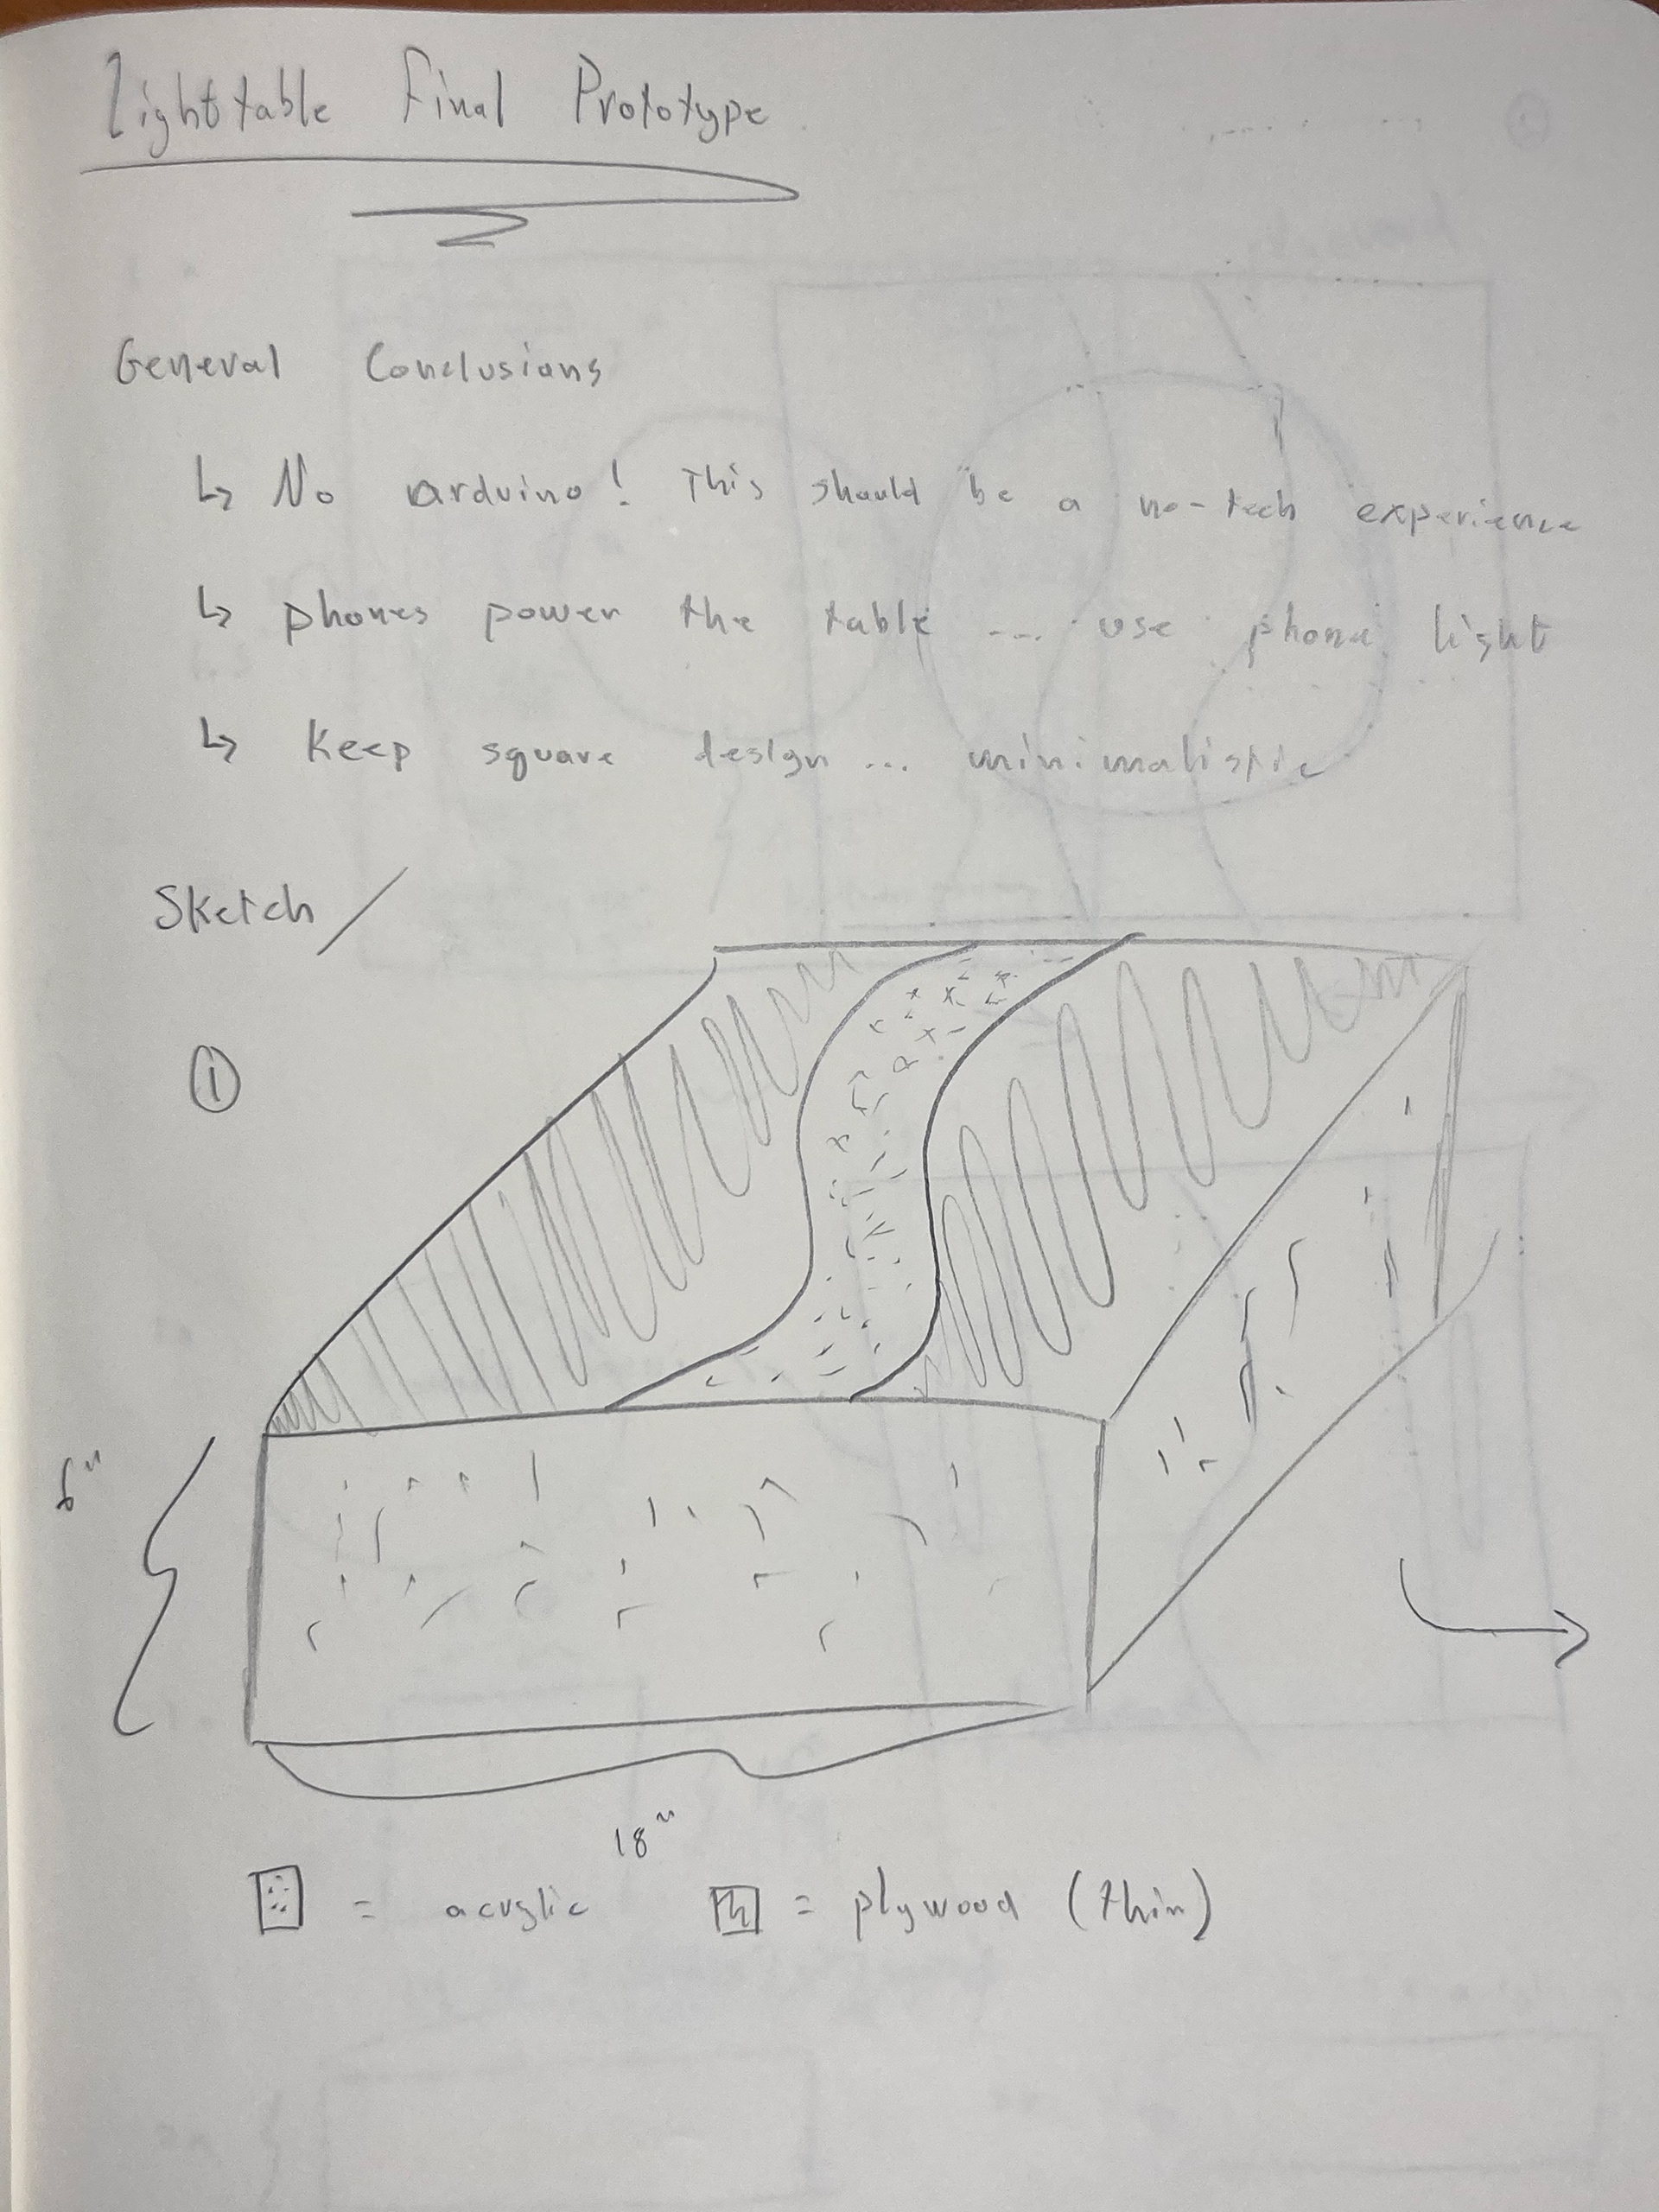 Lighttable Final Prototype
General Conclusions
↳ No arduino! This should be a no-tech experience
↳ phones power the table ... use phone light
↳ Keep square design ... minimalistic
Sketch /
①
6"
18"
= acrylic
= plywood (thin)